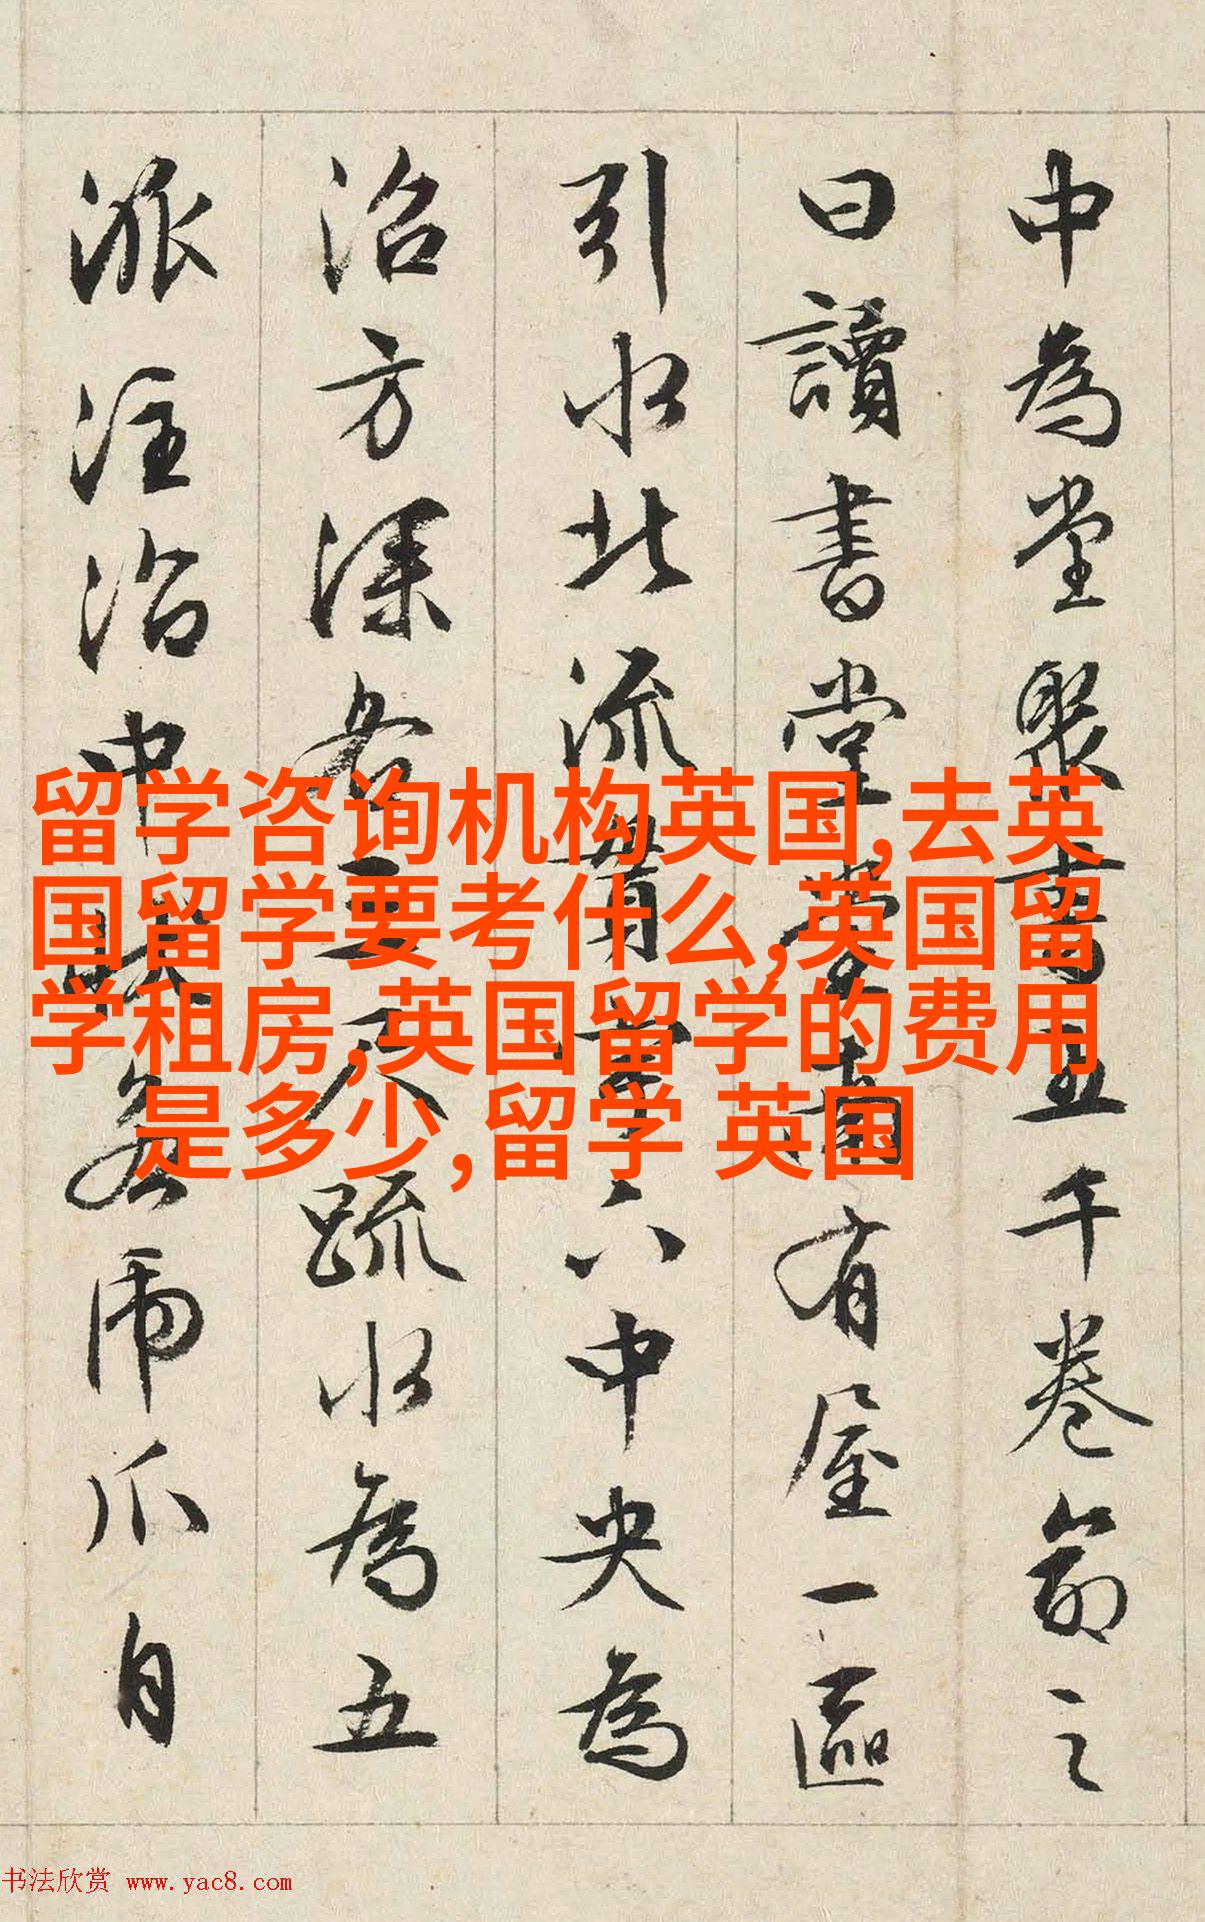 中為堂聚書五千卷命之
曰讀書堂堂南有屋一區
引水北流貫宇下中央為
沼方深各三尺疏水為五
派注沼中狀若虎爪自
留学咨询机构英国,去英
国留学要考什么,英国留
学租房,英国留学的费用
是多少,留学 英国
书法欣赏 www.yac8.com